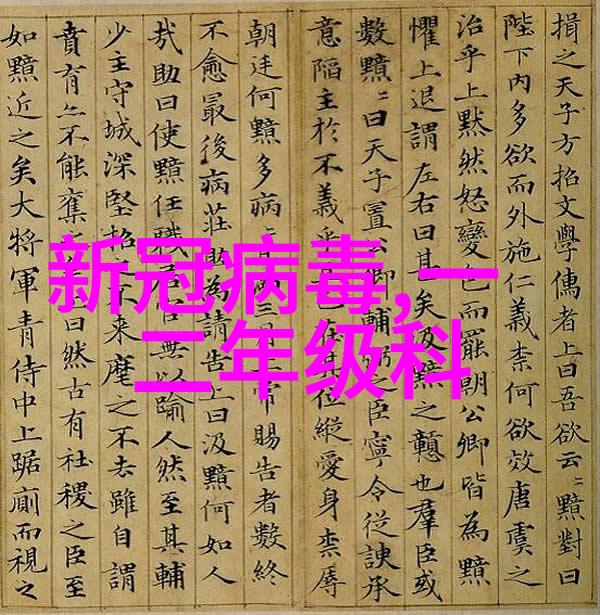 揖之天子方招文學儒者上曰吾欲云〻黯對曰
陛下内多欲而外施仁義柰何欲效唐虞之
治乎上黙然怒變色而罷朝公卿皆為黯
懼上退謂左右曰甚矣汲黯之戇也羣臣或
數黯〻曰天子置公卿輔弼之臣寧令従諛承
意陷主於不義乎在其位縱愛身柰辱
朝廷何黯多病〻三月上常賜告者數終
不愈最後病莊助為請告上曰汲黯何如人
㢤助曰使黯任職居官無以踰人然至其輔
少主守城深堅招之不来麾之不去雖自謂
賁育亦不能奪曰然古有社稷之臣至
如黯近之矣大將軍青侍中上踞廁而視之
新冠病毒,一
二年级科